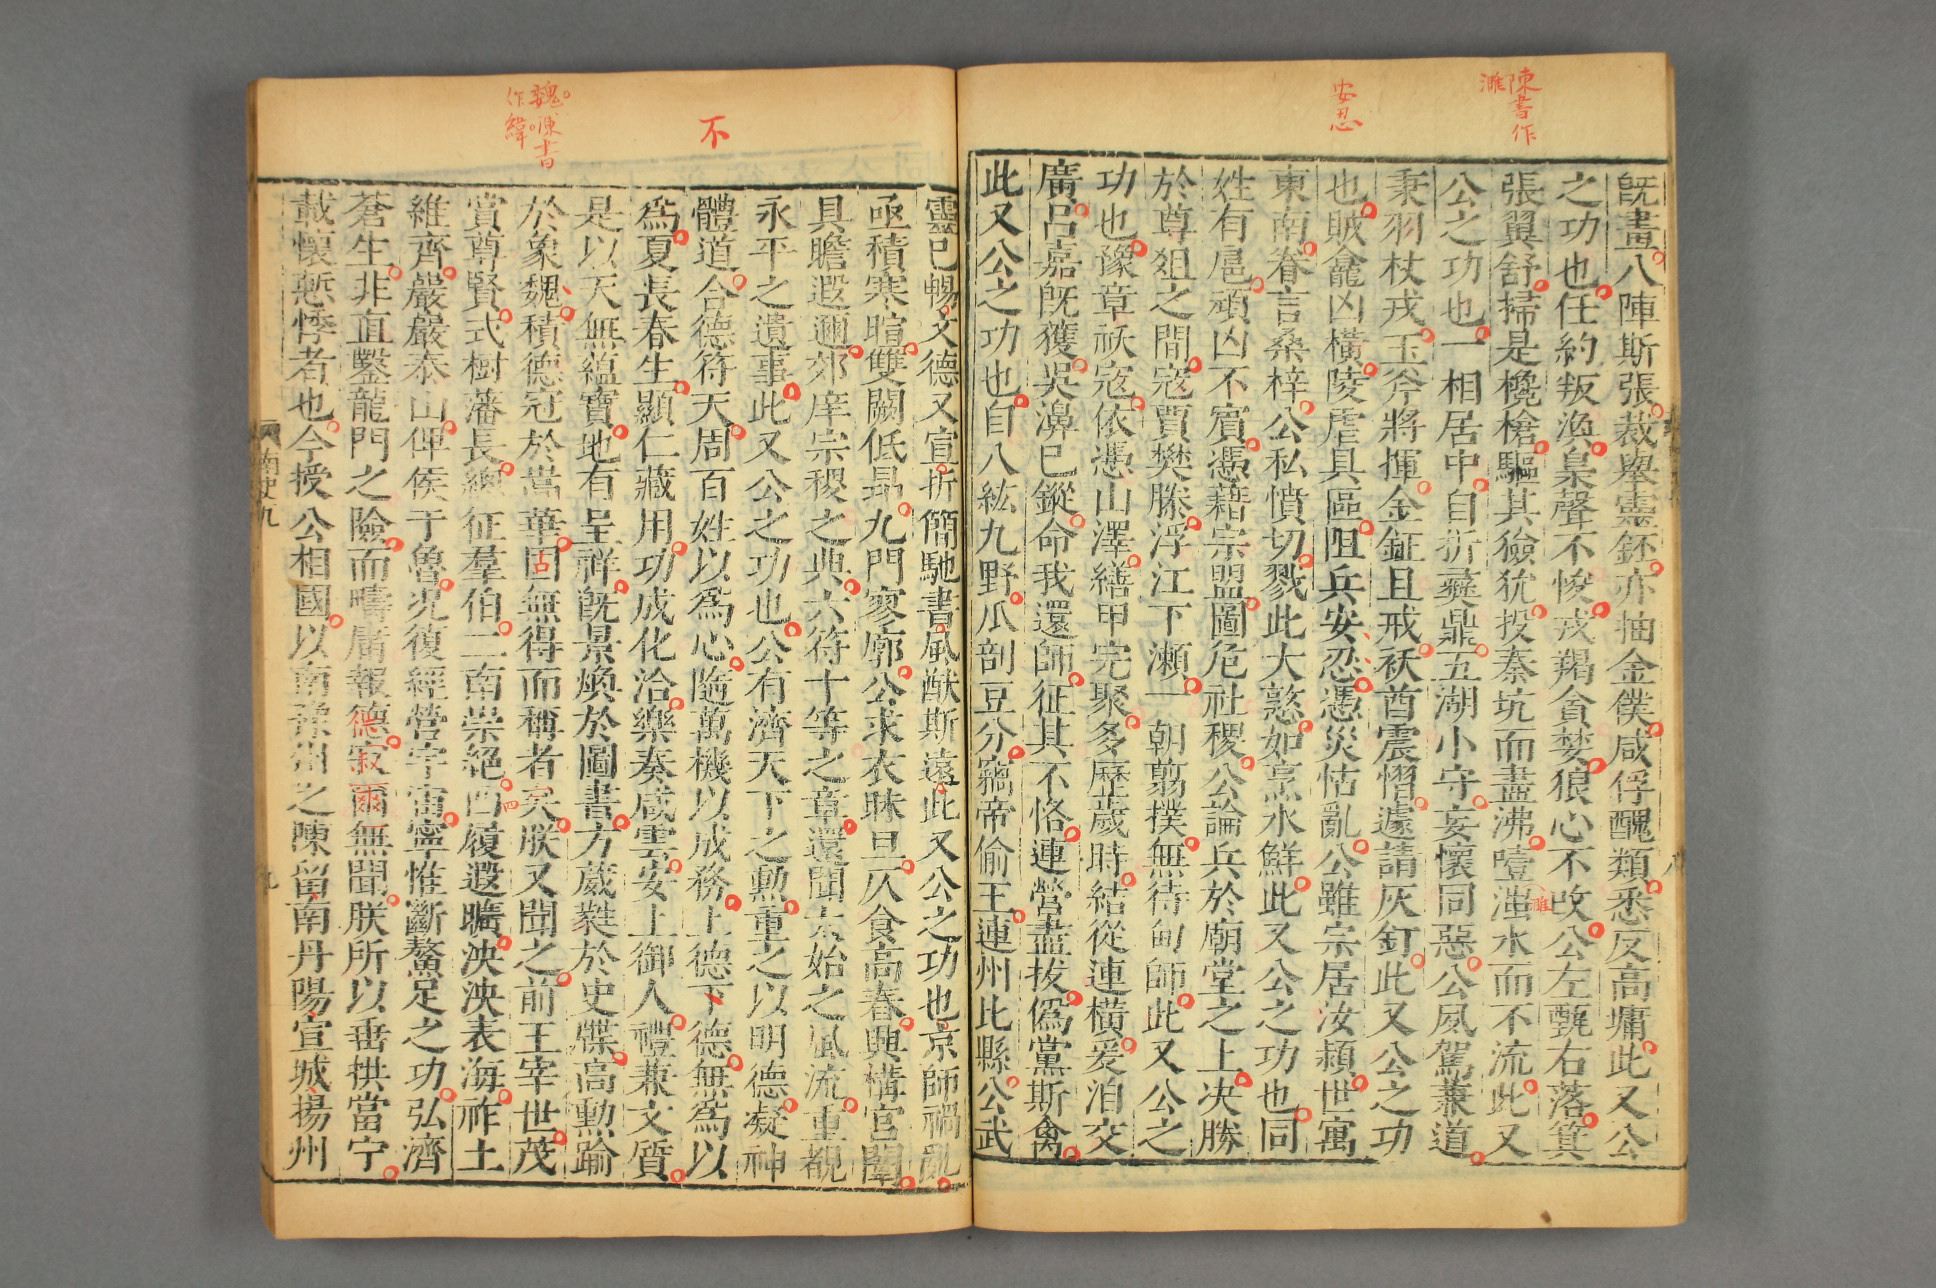 陳書作
濰
安忍
既畫八陣斯張裁舉靈鈈亦抽金僕咸俘醜類悉反高墉此又公
之功也任約叛渙梟聲不悛戎羯貪婪狼心不改公左甄右落箕
張翼舒掃是欃槍驅其獫狁投秦坑而盡沸噎濉水而不流此又
公之功也一相居中自折彝鼎五湖小守妄懷同惡公夙駕兼道
秉羽杖戎玉斧將揮金鉦且戒祅酋震慴遽請灰釘此又公之功
也賊龕凶橫陵虐具區阻兵安忍憑災怙亂公雖宗居汝潁世寓
東南眷言桑梓公私憤切戮此大憝如烹水鮮此又公之功也同
姓有扈頑凶不賓憑藉宗盟圖危社稷公論兵於廟堂之上決勝
於尊俎之間寇賈樊滕浮江下瀨一朝翦撲無待甸師此又公之
功也豫章祅寇依憑山澤繕甲完聚多歷歲時結從連橫爰洎交
廣呂嘉既獲吳濞已鏦命我還師征其不恪連營盡拔僞黨斯禽
此又公之功也自八紘九野瓜剖豆分竊帝偷王連州比縣公武
不
魏陳書
作緯
靈已暢文德又宣折簡馳書風猷斯遠此又公之功也京師禍亂
亟積寒暄雙闕低昂九門寥廓公求衣昧旦仄食高舂興構宮闈
具瞻遐邇郊庠宗稷之典六符十等之章還聞太始之風流重覩
永平之遺事此又公之功也公有濟天下之勳重之以明德凝神
體道合德符天周百姓以爲心隨萬機以成務上德下德無爲以
爲夏長春生顯仁藏用功成化洽樂奏咸雲安上御人禮兼文質
是以天無蘊寶地有呈祥旣景煥於圖書方葳蕤於史牒高勳踰
於象魏積德冠於嵩華固無得而稱者矣朕又聞之前王宰世茂
賞尊賢式樹藩長總征羣伯二南崇絕四履遐曠泱泱表海祚土
維齊巖巖泰山俾侯于魯况復經營宇宙寧惟斷鰲足之功弘濟
蒼生非直鑿龍門之險而疇庸報德寂爾無聞朕所以垂拱當宁
戴懷慙悸者也今授公相國以南豫州之陳留南丹陽宣城揚州
南史九
九